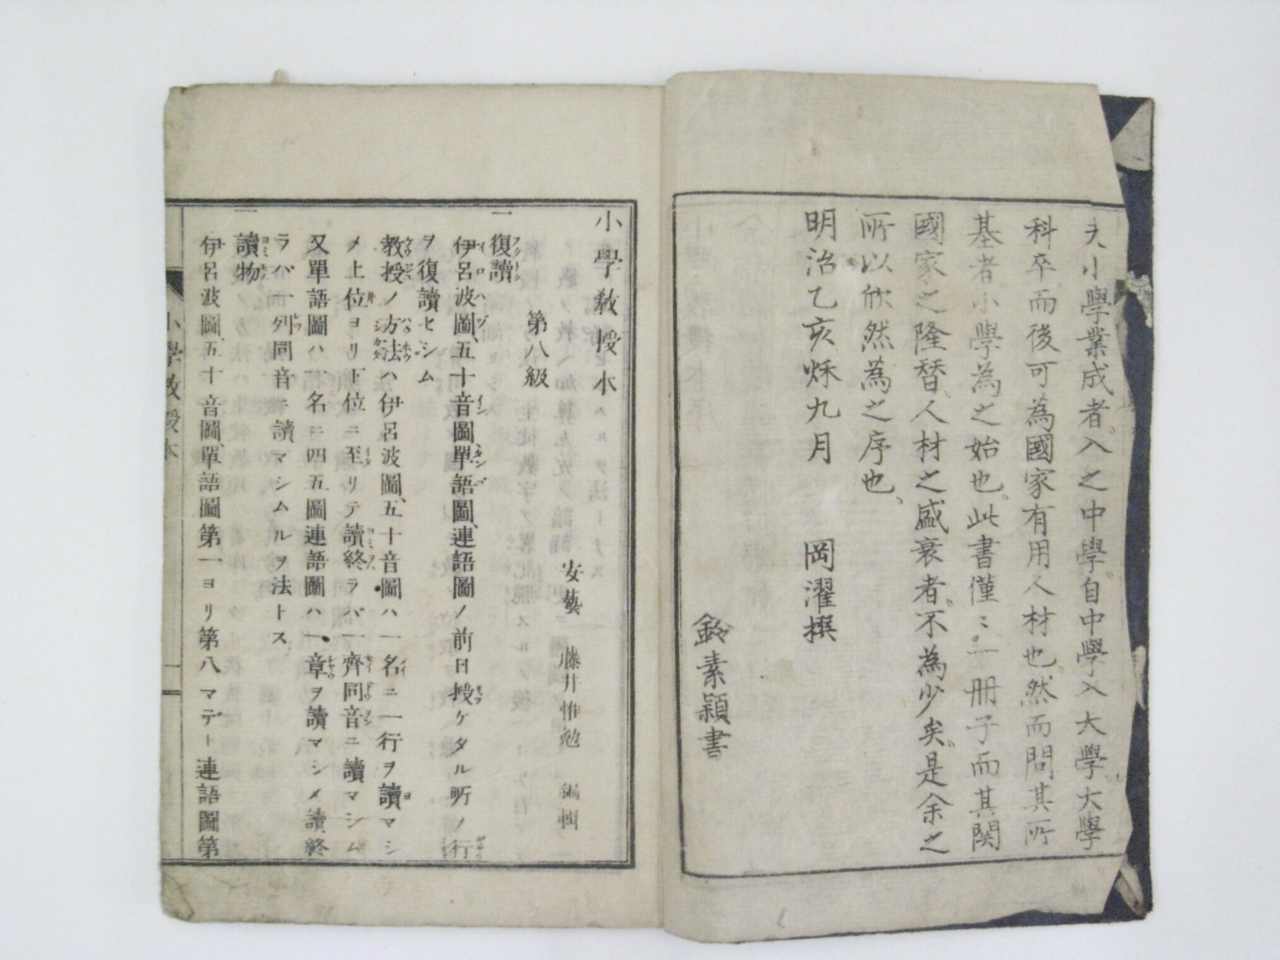 夫小學業成者、入之中學、自中學入大學、大學
科卒而後可為國家有用人材也、然而問其所
基者、小學為之始也、此書僅〻一冊子而其関
國家之隆替、人材之盛衰者、不為少矣、是余之
所以欣然為之序也、
明治乙亥秌九月 岡濯撰
鈴素穎書
小學教授本
安藝 藤井惟勉 編輯
第八級
一復讀
伊呂波圖、五十音圖、單語圖、連語圖ノ前日授ケタル所ノ行
ヲ復讀セシム
教授ノ方法ハ伊呂波圖、五十音圖ハ一名ニ一行ヲ讀マシ
メ上位ヨリ下位ニ至リテ讀終ラバ一齊同音ニ讀マシム
又單語圖ハ一名ニ四五圖連語圖ハ一章ヲ讀マシメ讀終
ラバ一列同音ニ讀マシムルヲ法トス
一讀物
伊呂波圖、五十音圖、單語圖第一ヨリ第八マデト連語圖第
小學教授本